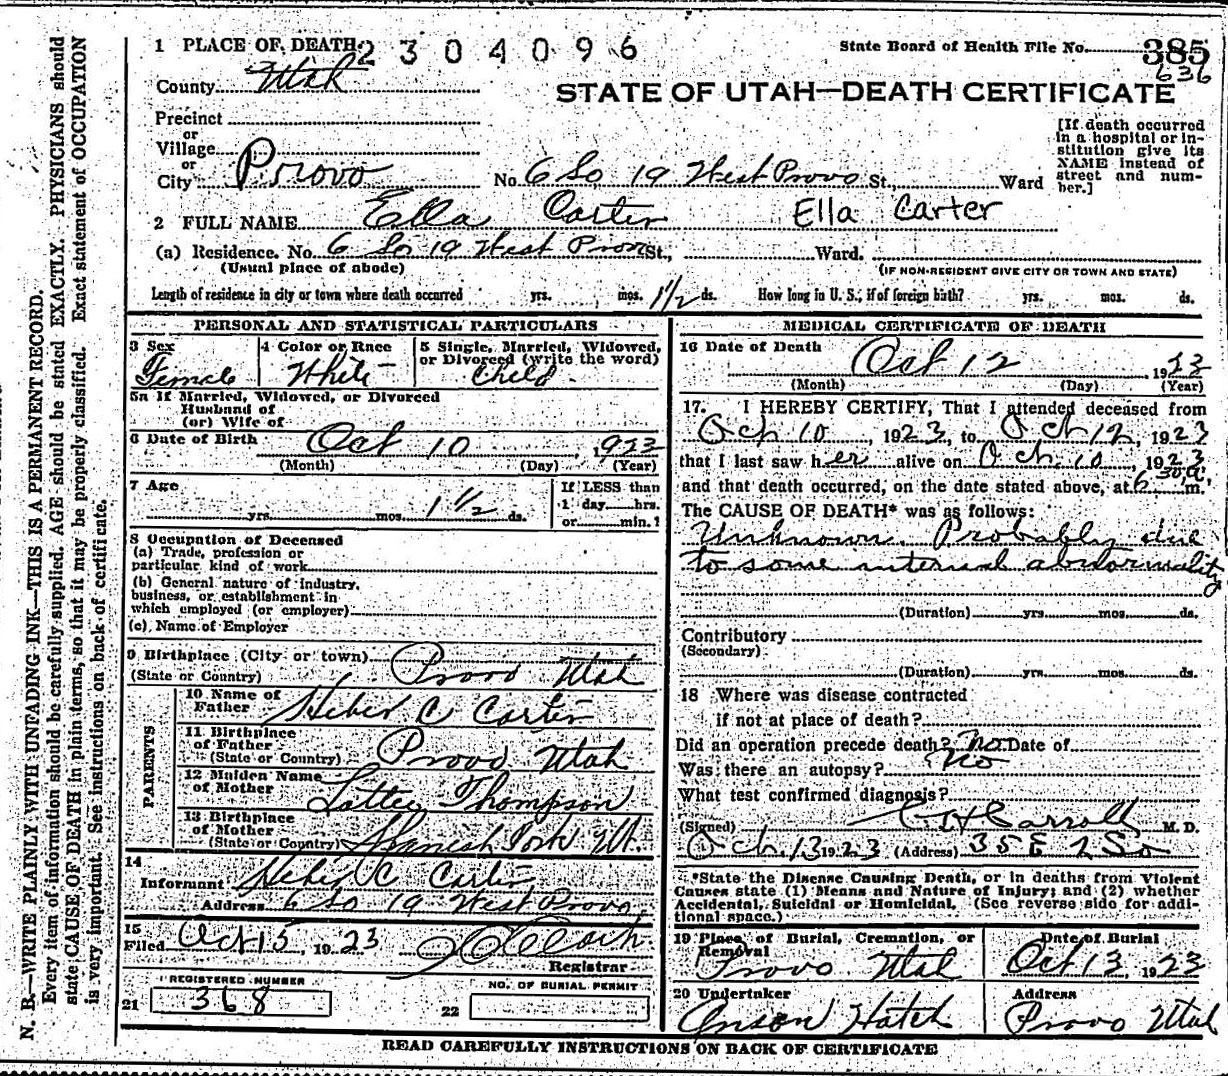 1 PLACE OF DEATH 2304096 State Board of Health File No. 385
636
County Utah
STATE OF UTAH—DEATH CERTIFICATE
Precinct
or
Village
or
City Provo No. 6 So 19 West Provo St., Ward
[If death occurred in a hospital or institution give its NAME instead of street and number.]
2 FULL NAME Ella Carter Ella Carter
(a) Residence. No. 6 So 19 West Provo St., Ward.
(Usual place of abode) (IF NON-RESIDENT GIVE CITY OR TOWN AND STATE)
Length of residence in city or town where death occurred yrs. mos. 1 1/2 ds. How long in U. S., if of foreign birth? yrs. mos. ds.
PERSONAL AND STATISTICAL PARTICULARS
3 Sex Female
4 Color or Race White
5 Single, Married, Widowed, or Divorced (write the word) Child
5a If Married, Widowed, or Divorced
Husband of
(or) Wife of
6 Date of Birth Oct 10, 1923
(Month) (Day) (Year)
7 Age yrs. mos. 1 1/2 ds.
If LESS than
1 day hrs.
or min.?
8 Occupation of Deceased
(a) Trade, profession or
particular kind of work
(b) General nature of industry,
business, or establishment in
which employed (or employer)
(c) Name of Employer
9 Birthplace (City or town) Provo Utah
(State or Country)
PARENTS
10 Name of
Father Heber C Carter
11 Birthplace
of Father Provo Utah
(State or Country)
12 Maiden Name
of Mother Thompson
13 Birthplace
of Mother Spanish Fork Ut.
(State or Country)
14
Informant Heber C Carter
Address 6 So 19 West Provo
15
Filed Oct 15 1923
Registrar
REGISTERED NUMBER
21 368
NO. OF BURIAL PERMIT
22
MEDICAL CERTIFICATE OF DEATH
16 Date of Death Oct 12, 1923
(Month) (Day) (Year)
17. I HEREBY CERTIFY, That I attended deceased from
Oct 10, 1923, to Oct 12, 1923
that I last saw her alive on Oct. 10, 1923
and that death occurred, on the date stated above, at 6 30 a. m.
The CAUSE OF DEATH* was as follows:
Unknown. Probably due
to some internal abdormality
(Duration) yrs. mos. ds.
Contributory
(Secondary)
(Duration) yrs. mos. ds.
18 Where was disease contracted
if not at place of death?
Did an operation precede death? No Date of
Was there an autopsy? No
What test confirmed diagnosis?
(Signed) C H Carroll M. D.
Oct. 13 1923 (Address) 35 E 2 So
*State the Disease Causing Death, or in deaths from Violent
Causes state (1) Means and Nature of Injury; and (2) whether
Accidental, Suicidal or Homicidal. (See reverse side for addi-
tional space.)
19 Place of Burial, Cremation, or
Removal
Provo Utah
Date of Burial
Oct 13, 1923
20 Undertaker
Anson Hatch
Address
Provo Utah
READ CAREFULLY INSTRUCTIONS ON BACK OF CERTIFICATE
N. B.—WRITE PLAINLY WITH UNFADING INK—THIS IS A PERMANENT RECORD.
Every item of information should be carefully supplied. AGE should be stated EXACTLY. PHYSICIANS should
state CAUSE OF DEATH in plain terms, so that it may be properly classified. Exact statement of OCCUPATION
is very important. See instructions on back of certificate.